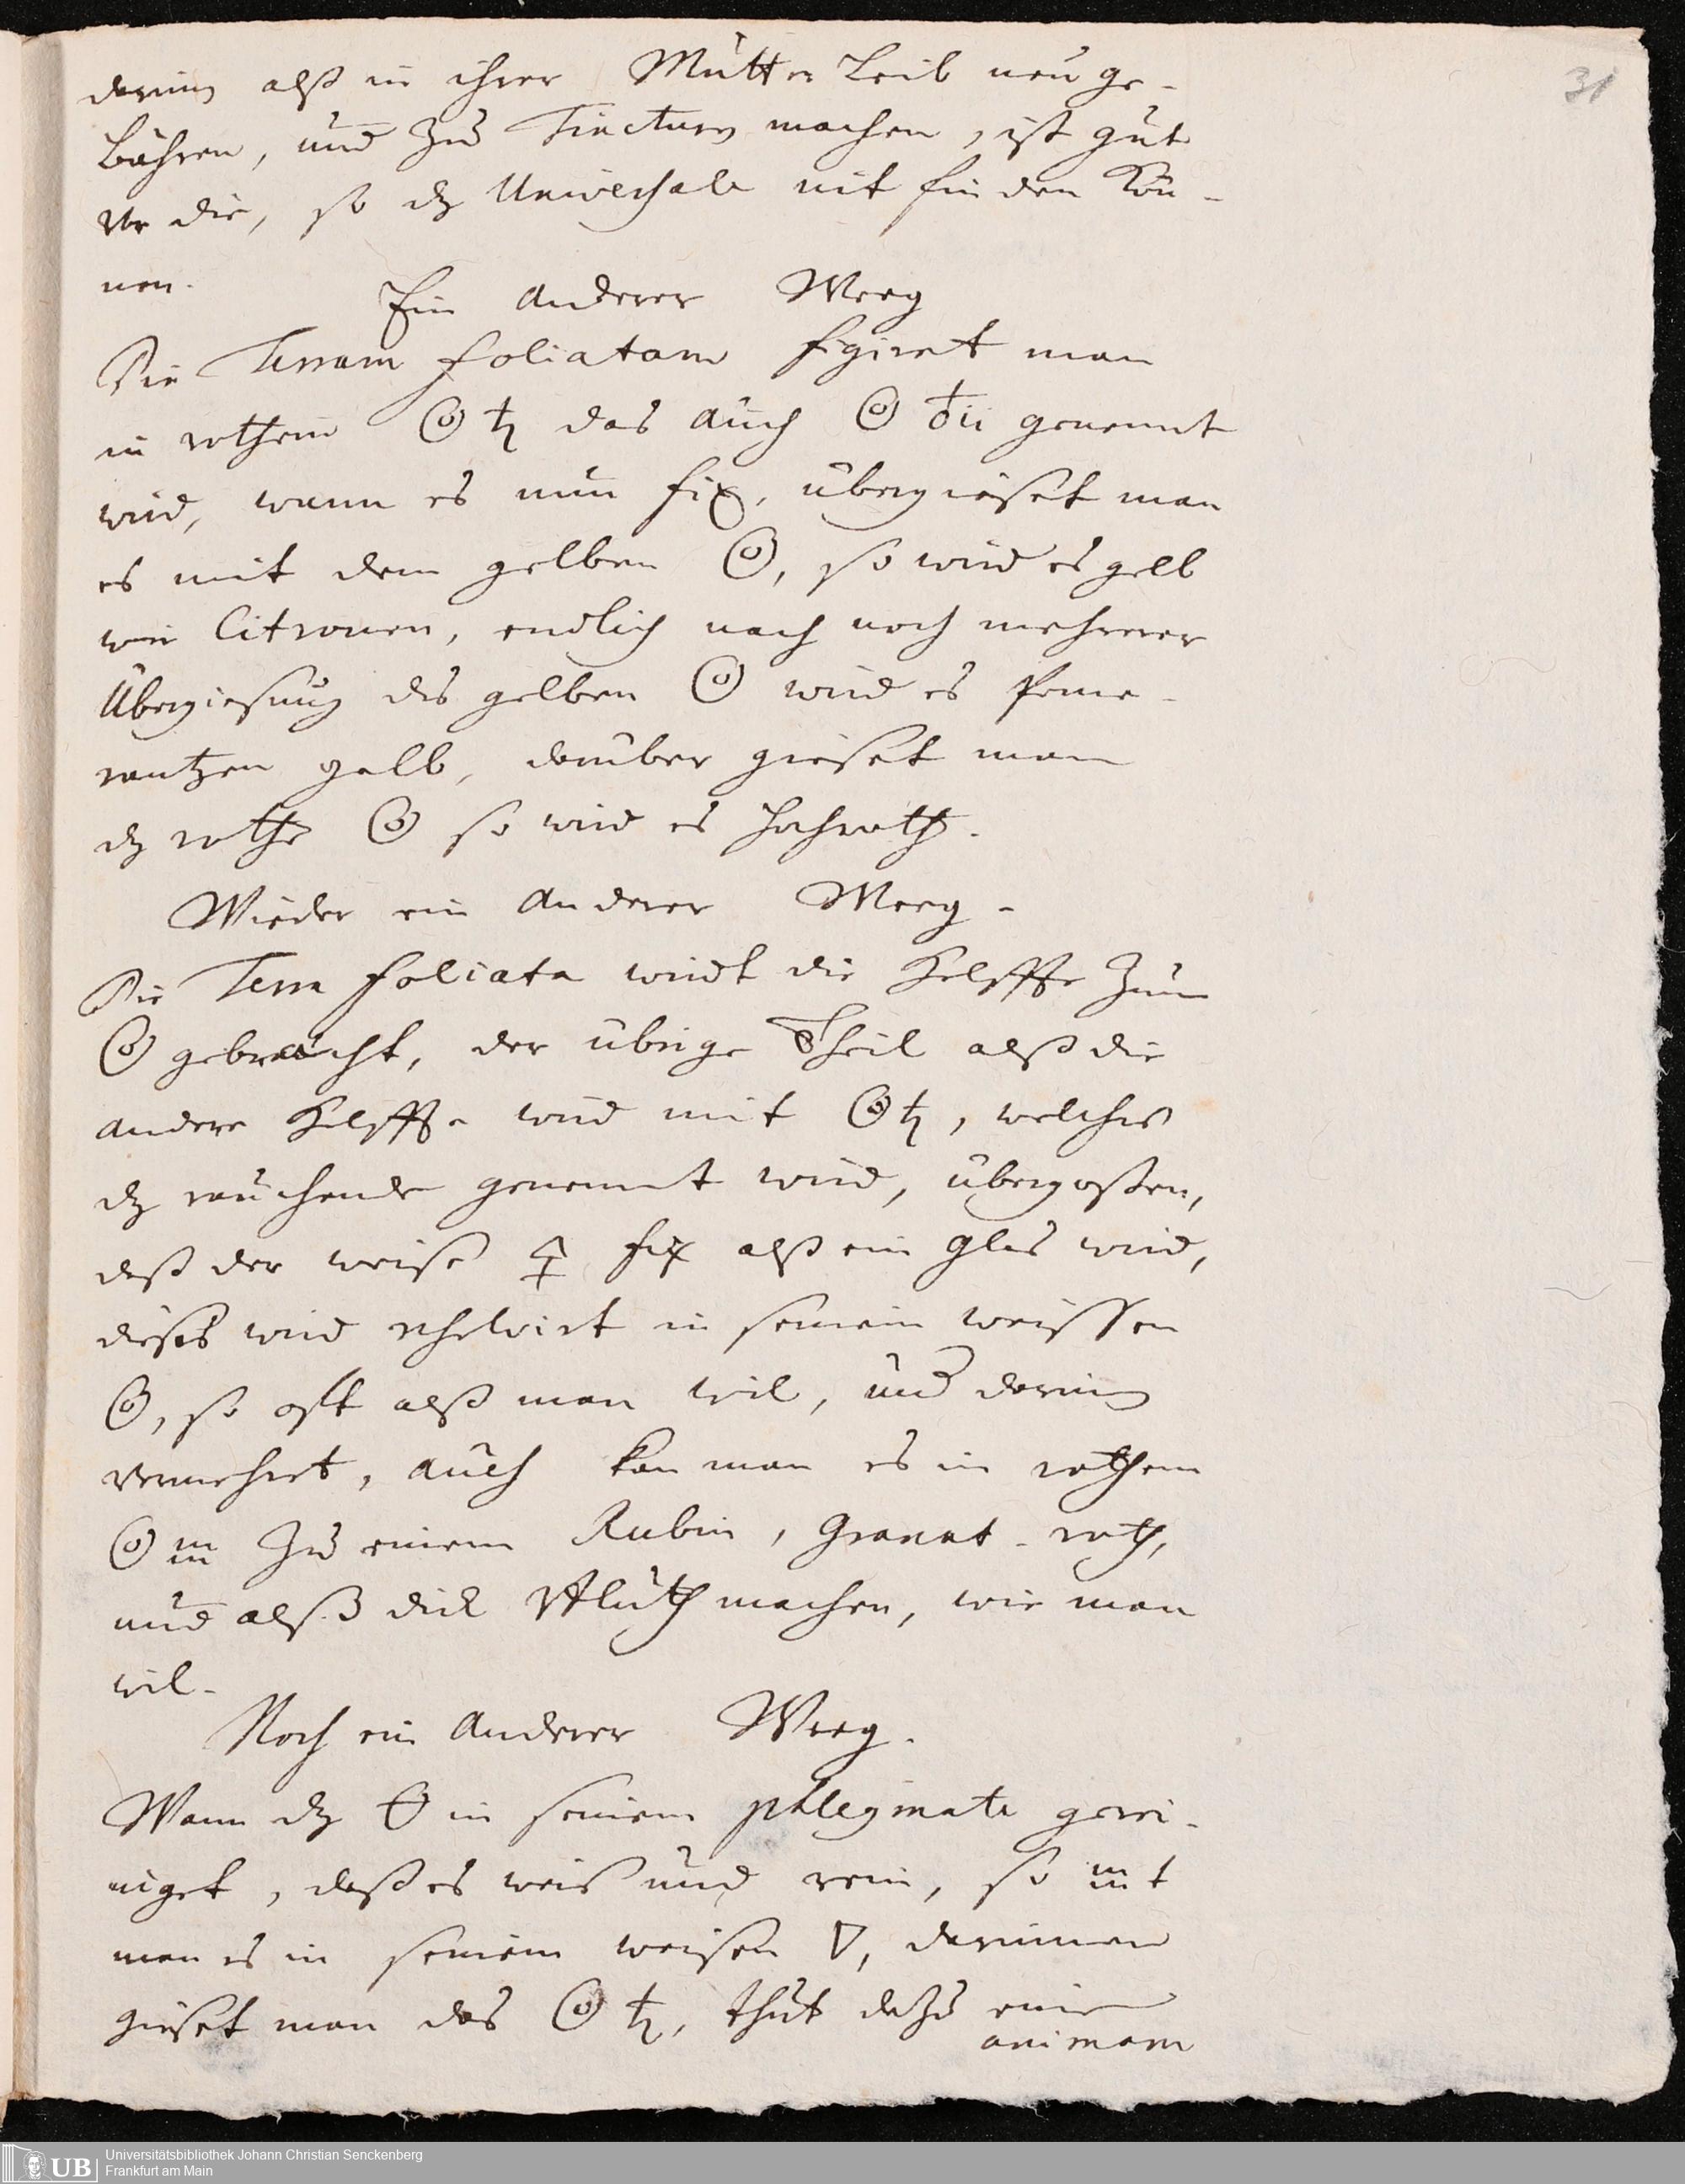 31
darinn alß in ihrer Mutter Leib neu ge-
bähren, und zu Tinctur machen, ist gut
vor die, so dz Universale nit finden kön-
nen.
Ein anderer Weeg
Die Terram foliatam figiret man
in rothem ☉ ♄ das auch ☉ ♁ii genennt
wird, wann es nun fix, übergieset man
es mit dem gelben ☉, so wird es gelb
wie Citronen, endlich nach noch mehrerer
Übergiesung des gelben ☉ wird es Pome-
rantzen gelb, darüber gieset man
dz rothe ☉ so wird es hochroth.
Wieder ein anderer Weeg.
Die Terra foliata wirdt die Helffte zum
☉ gebraucht, der übrige Theil alß die
andere Helffte wird mit ☉♄, welches
dz rauchende genennt wird, übergoßen,
daß der weise 🜍 fix alß ein Glas wird,
dieses wird resolvirt in seinem weissen
☉, so oft alß man wil, und darinn
vermehret, auch kan man es in rothem
☉ zu einem Rubin, Granat-roth,
und alß dick Bluth machen, wie man
wil.
Noch ein anderer Weeg.
Wann dz 🜔 in seinem phlegmate gerei-
niget, daß es weis und rein, so t
man es in seinem weisen ▽, darinnen
gieset man das ☉ ♄, thut dazu eine
animam
UB Universitätsbibliothek Johann Christian Senckenberg
Frankfurt am Main